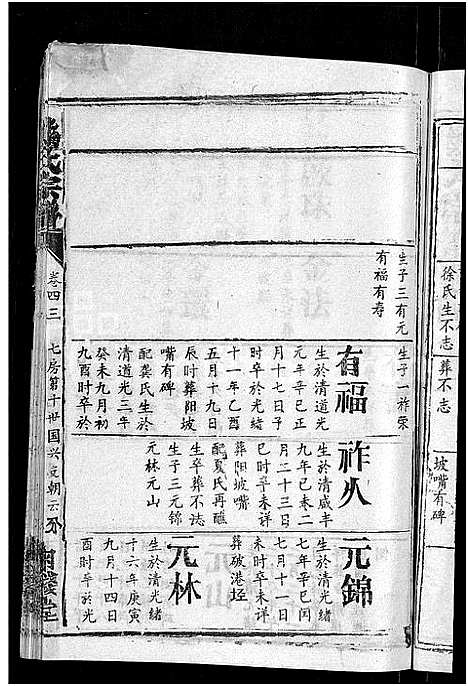 徐氏生不志
葬不志
坡嘴有碑
生子三有元
有福有寿
生子一祚荣
有福
生於清道光
元年辛巳正
月十七日子
时卒於光绪
十一年乙酉
五月十九日
辰时葬阳坡
嘴有碑
配龚氏生於
清道光三年
癸未九月初
九酉时卒於
祚火
生於清咸丰
九年己巻二
月二十三日
巳时卒未详
葬阳坡嘴
配夏氏再醮
生卒葬不志
生子三元锦
元林元山
元錦
生於清光绪
七年辛巳闰
七月十一日
未时卒未详
葬破港垤
元林
生於清光绪
十六年庚寅
九月十四日
酉时卒於光
氏宗譜
卷四三
七房第十世国兴支朝云分